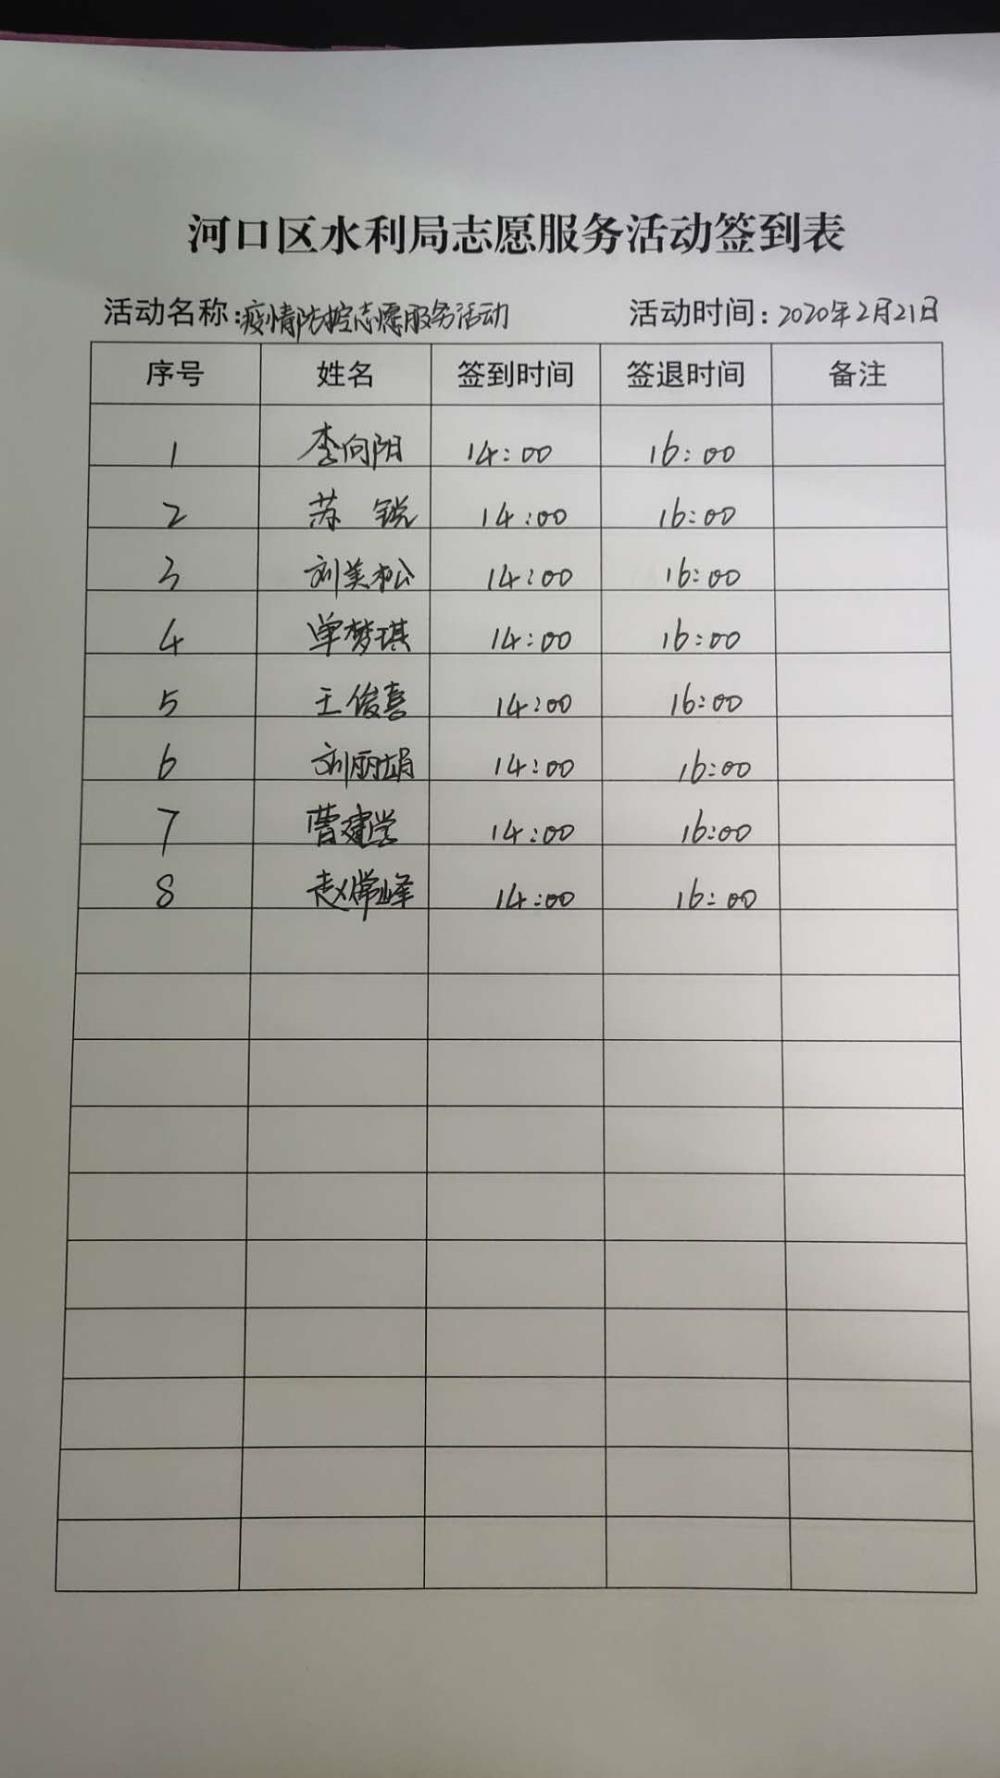 河口区水利局志愿服务活动签到表
活动名称:疫情防控志愿服务活动 活动时间:2020年2月21日
序号 姓名 签到时间 签退时间 备注
1 李向阳 14:00 16:00
2 苏锐 14:00 16:00
3 刘美松 14:00 16:00
4 单梦琪 14:00 16:00
5 王俊喜 14:00 16:00
6 刘丽娟 14:00 16:00
7 曹建学 14:00 16:00
8 赵常峰 14:00 16:00